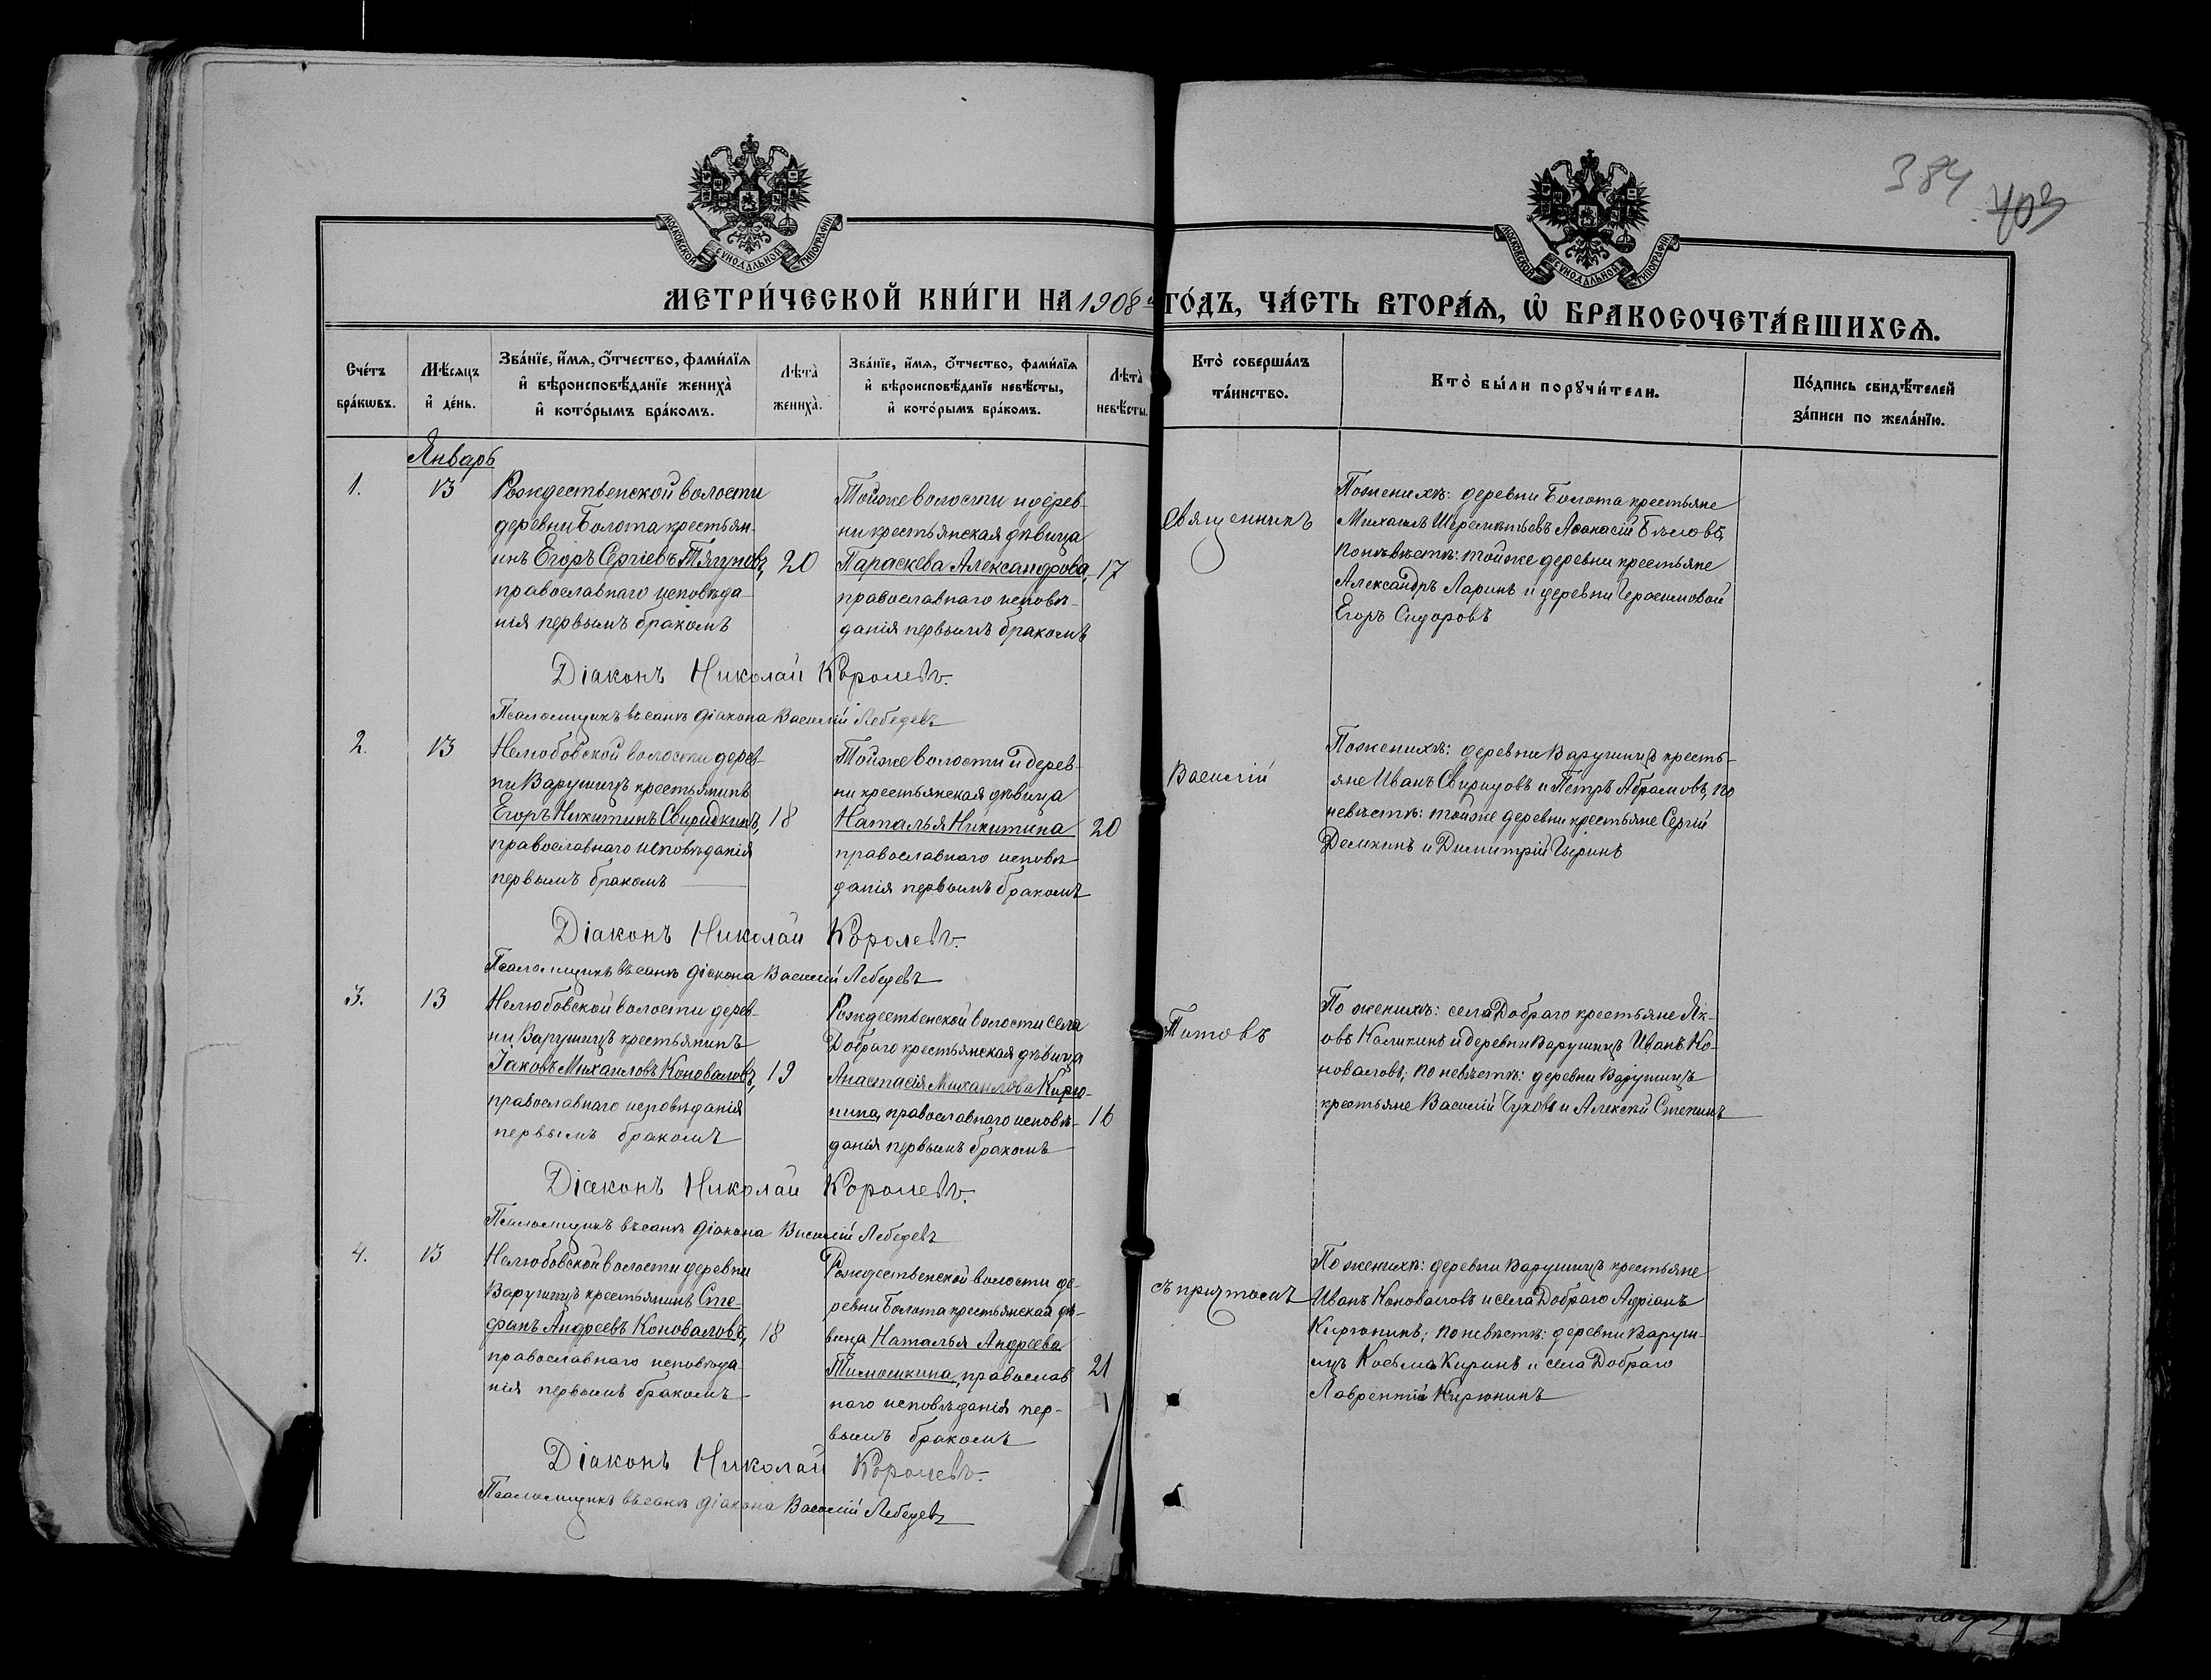 384. 403
МОСКОВСКОЙ СѴНОДАЛЬНОЙ ТИПОГРАФІИ
МОСКОВСКОЙ СѴНОДАЛЬНОЙ ТИПОГРАФІИ
МЕТРИ́ЧЕСКОЙ КНИ́ГИ НА 1908 й ГО́ДЪ, ЧА́СТЬ ВТОРА́Ѧ, Ѽ БРАКОСОЧЕТА́ВШИХСѦ.
Сче́тъ бра́кѡвъ.
Мѣ́сяцъ и҆ де́нь.
Зва́нїе, и҆́мѧ, ѻ҆́тчество, фами́лїѧ
и҆ вѣроисповѣ́данїе жениха̀
и҆ кото́рымъ бра́комъ.
Лѣта̀ жениха̀.
Зва́нїе, и҆́мѧ, ѻ҆́тчество, фами́лїѧ
и҆ вѣроисповѣ́данїе невѣ́сты,
и҆ кото́рымъ бра́комъ.
Лѣта̀ невѣ́сты.
Кто̀ соверша́лъ
та́инство.
Кто̀ бы́ли порꙋчи́тели.
По́дпись свидѣ́телей
за́писи по жела́нїю.
Январь
1.
13
Рождественской волости
деревни Болота крестьян-
инъ Егоръ Сергіевъ Тягуновъ,
православнаго исповѣда-
нія первымъ бракомъ
20
Тойже волости и дерев-
ни крестьянская дѣвица
Параскева Александрова,
православнаго исповѣ-
данія первымъ бракомъ
17
Священникъ
По женихѣ: деревни Болота крестьяне
Михаилъ Шереметьевъ Аѳанасій Бѣловъ,
по невѣстѣ: тойже деревни крестьяне
Александръ Ларинъ и деревни Герасимовой
Егоръ Сидоровъ
Діаконъ Николай Королевъ.
Псаломщикъ въ санѣ діакона Василій Лебедевъ
2.
13
Нелюбовской волости дерев-
ни Варушицъ крестьянинъ
Егоръ Никитинъ Свиридкинъ,
православнаго исповѣданія
первымъ бракомъ
18
Тойже волости и дерев-
ни крестьянская дѣвица
Наталья Никитина
православнаго исповѣ
данія первымъ бракомъ
20
Василій
По женихѣ: деревни Варушицъ кресть-
яне Иванъ Свиридовъ и Петръ Абрамовъ, по
невѣстѣ: тойже деревни крестьяне Сергій
Демкинъ и Димитрій
Діаконъ Николай Королевъ.
Псаломщикъ въ санѣ діакона Василій Лебедевъ
3.
13
Нелюбовской волости дерев-
ни Варушицъ крестьянинъ
Іаковъ Михаиловъ Коноваловъ,
православнаго исповѣданія
первымъ бракомъ
19
Рождественской волости села
Добраго крестьянская дѣвица
Анастасія Михаилова Кирю-
нина, православнаго исповѣ-
данія первымъ бракомъ
16
Титовъ
По женихѣ: села Добраго крестьяне Як-
овъ Каликинъ и деревни Варушицъ Иванъ Ко-
новаловъ; по невѣстѣ: деревни Варушицъ
крестьяне Василій Чуковъ и Алексѣй Степинъ
Діаконъ Николай Королевъ.
Псаломщикъ въ санѣ діакона Василій Лебедевъ
4.
13
Нелюбовской волости деревни
Варушицъ крестьянинъ Сте-
фанъ Андреевъ Коноваловъ,
православнаго исповѣда-
нія первымъ бракомъ
18
Рождественской волости де-
ревни Болота крестьянская дѣ-
вица Наталья Андреева
Тимошкина, православ
наго исповѣданія пер-
вымъ бракомъ
21
съ причтомъ
По женихѣ: деревни Варушицъ крестьяне
Иванъ Коноваловъ и села Добраго Адріанъ
Кирюнинъ; по невѣстѣ: деревни Варуш-
ицъ Косьма Киринъ и села Добраго
Лаврентій Кирюнинъ
Діаконъ Николай Королевъ.
Псаломщикъ въ санѣ діакона Василій Лебедевъ